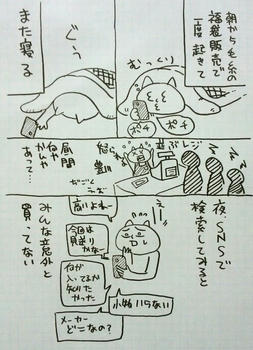 朝から毛糸の
福袋販売で
一度起きて
むっくり
ポチ
ポチ
ぐぅ
また寝る
昼間
あって…
夜、SNSで
検索してみると
えー
高いよね…
今回は
見送り
かなー
何が
入ってるか
知りた
かった
小物いらない
メーカー
どこなの?
みんな意外と
買ってない